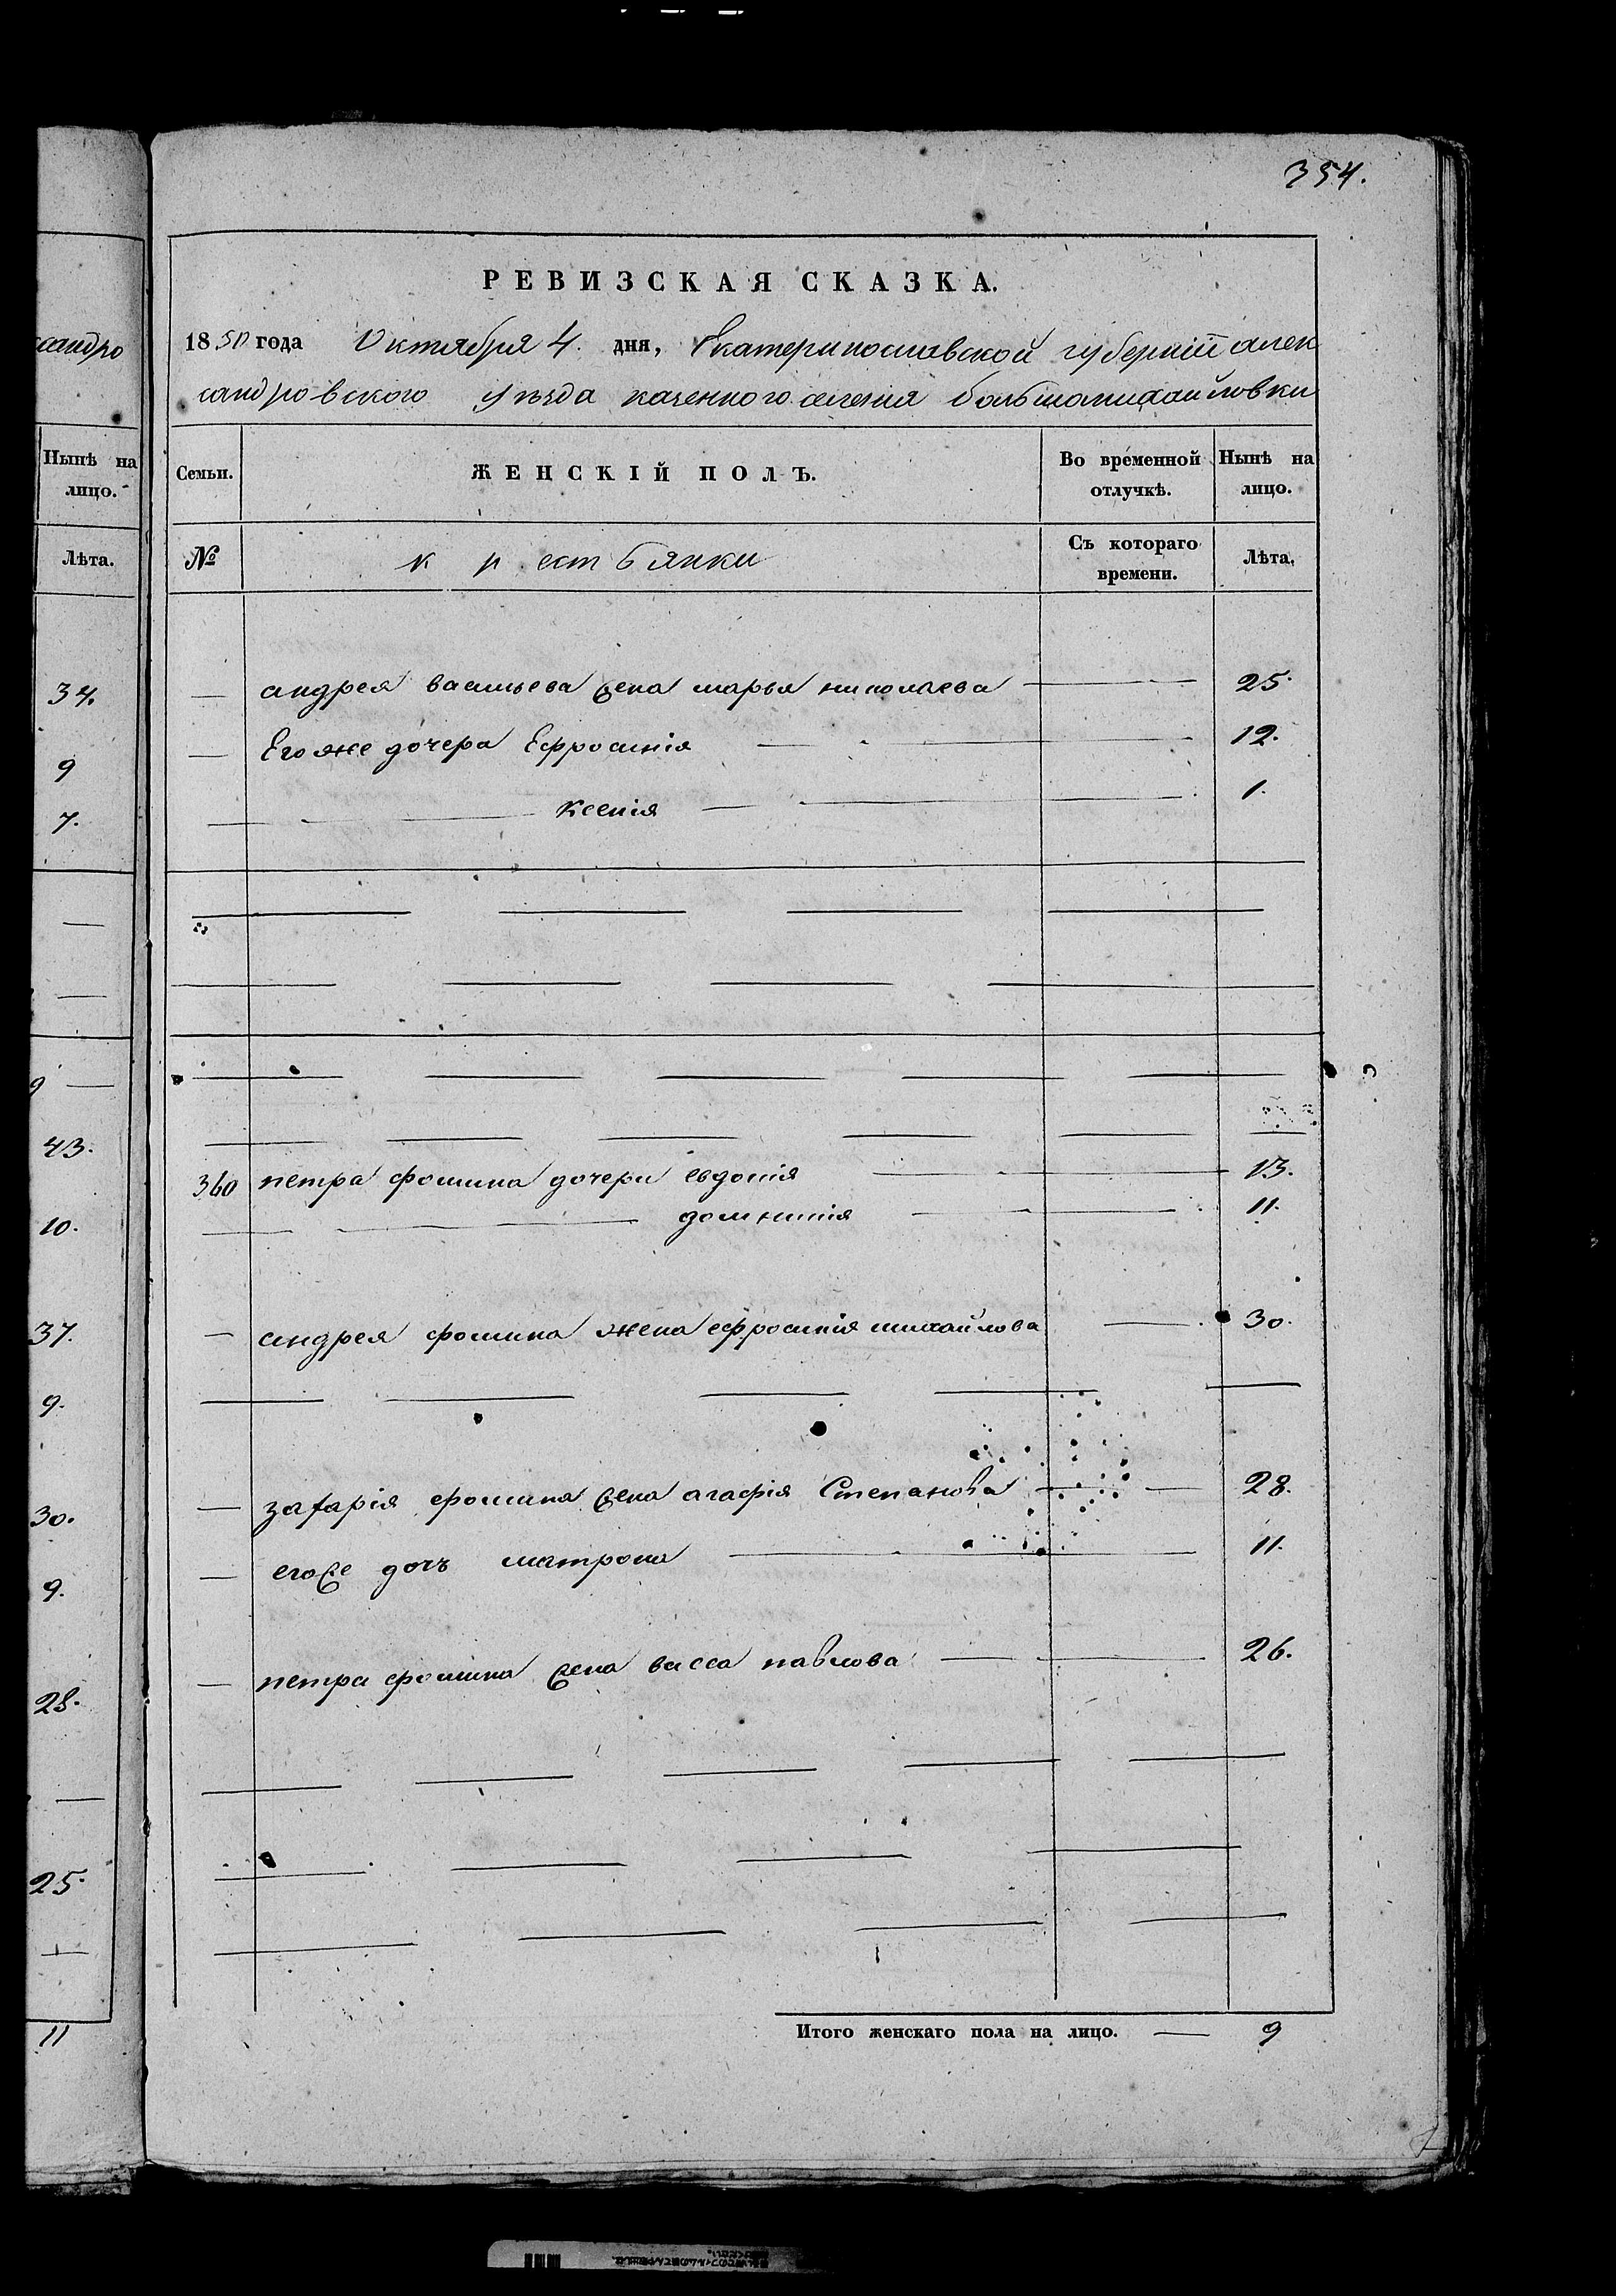 354.
РЕВИЗСКАЯ СКАЗКА.
1850 года Октября 4. дня, Екатеринославской губернiи алек
сандровского уѣзда казенного селенiя большомихайловки
сандро
Нынѣ на лицо.
Лѣта.
34.
9
7.
9
43.
10.
37.
9.
30.
9.
28.
25.
11
Семьи. ЖЕНСКIЙ ПОЛЪ. Во временной отлучкѣ. Нынѣ на лицо.
№ крестьянки Съ котораго времени. Лѣта.
андрея васильева жена марья николаева 25.
Его же дочера Ефросинiя 12.
Ксенiя 1.
360 петра фомина дочери евдокiя 13.
домникiя 11.
андрея фомина жена ефросинiя михайлова 30.
захарiя фомина жена агафiя Степанова 28.
егоже дочъ матрона 11.
петра фомина жена васса павлова 26.
Итого женскаго пола на лицо. 9